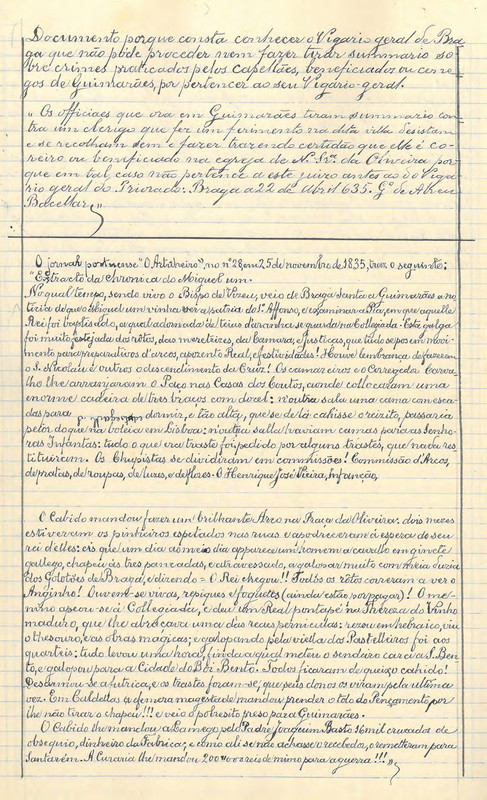 Documento porque consta conhecer o Vigario geral de Bra
ga que não pòde proceder nem fazer tirar summario so
bre crimes praticados pelos capellães, beneficiados ou cone
gos de Guimarães, por pertencer ao seu Vigário-geral.
" Os officiaes que ora em Guimarães tiram summario con
tra um clerigo que fez um ferimento na dita villa desistam
e se recolham sem o fazer trazendo certidão que elle é co
reiro ou beneficiado na egreja de N. Srª. da Oliveira por
que em tal caso não pertence a este juizo antes ao do Viga
rio geral do Priorado. Braga a 22 de Abril 635. Gº de Abreu
Bacellar"
O jornal portuense "O Artilheiro", no nº 28, em 25 de novembro de 1835, traz o seguinte:
"Extracto da Chronica do Miguel um.
No qual tempo, sendo vivo o Bispo de Vizeu, veio de Braga Santa a Guimarães a no
ticia de que o Miguel um vinha ver a patria do 1º. Affonso, e examinar a Pia, em que aquelle
Rei foi baptisado, e qual adornada de teias d'aranha se guarda na Collegiada. Esta galga
foi muito festejada dos rôtos, das meretrizes, da Camara, e Justiças, que tudo se pos em movi
mento para preparativos d'arcos, aposento Real, e festividades! Houve lembrança de fazerem
o S. Nicolau e outros o descendimento da Cruz! Os camareiros e o Corregedor Carva
lho lhe arranjaram o Paço nas Casas dos Coutos, aonde collocaram uma
enorme cadeira de tres braços com docel: n'outra sala uma cama com esca
das para dormir, e tão alta, que se de lá cahisse o reizito, passaria
pelor do que na boleia em Lisboa: n'outra salla haviam camas para as Senho
ras Infantas: tudo o que era traste foi pedido por alguns trastes, que nada res
tituirem. Os Chupistas se dividiram em commissões! Commissão d'Arcos,
de pratas, de roupas, de luzes, e de flores. O Henrique José Vieira, Infanção,
O Cabido mandou fazer um brilhante Arco na Praça da Oliveira: dois mezes
estiveram os pinheiros espetados nas ruas e apodreceram á espera do seu
rei d'elles: eis que um dia ao meio dia apparece um homem a cavallo em ginete
gallego, chapeu ás tres pancadas, e atravessado, a galopar muito com meia duzia
dos Gôtotões de Braga, e dizendo = O Rei chegou!! Todos os rôtos correram a ver o
Anginho! Ouvem-se vivas, repiques e foguetes (ainda estão por pagar)! O me
nino apeou-se á Collegiada, e deu um Real pontapé na Thereza do Vinho
maduro, que lhe abraçava uma das reaes perniculas: rezou em hebraico, viu
o thesouro, e as obras magicas; e galopando pela viella dos Pasteleiros foi aos
quarteis: tudo levou uma hora, finda a qual meteu o sendeiro cara a S. Ben
to, e galopou para a Cidade do Boi Bento! Todos ficaram de queixo cahido!
Desarmou-se a futrica, e os trastes foram-se, que seus donos os viram pela ultima
vez. Em Caldellas a mesma magestade mandou prender o tolo do Pençamento por
lhe não tirar o chapeu!!! e veio o pobresito preso para Guimarães.
O Cabido lhe mandou a Lamego pelo Padre Joaquim Basto 16 mil cruzados de
obsequio, dinheiro da Fabrica; e como ali se não achasse o recebedor, o remetteram para
Santarém. A Curaria lhe mandou 200$000 reis de mimo para a guerra!!!"